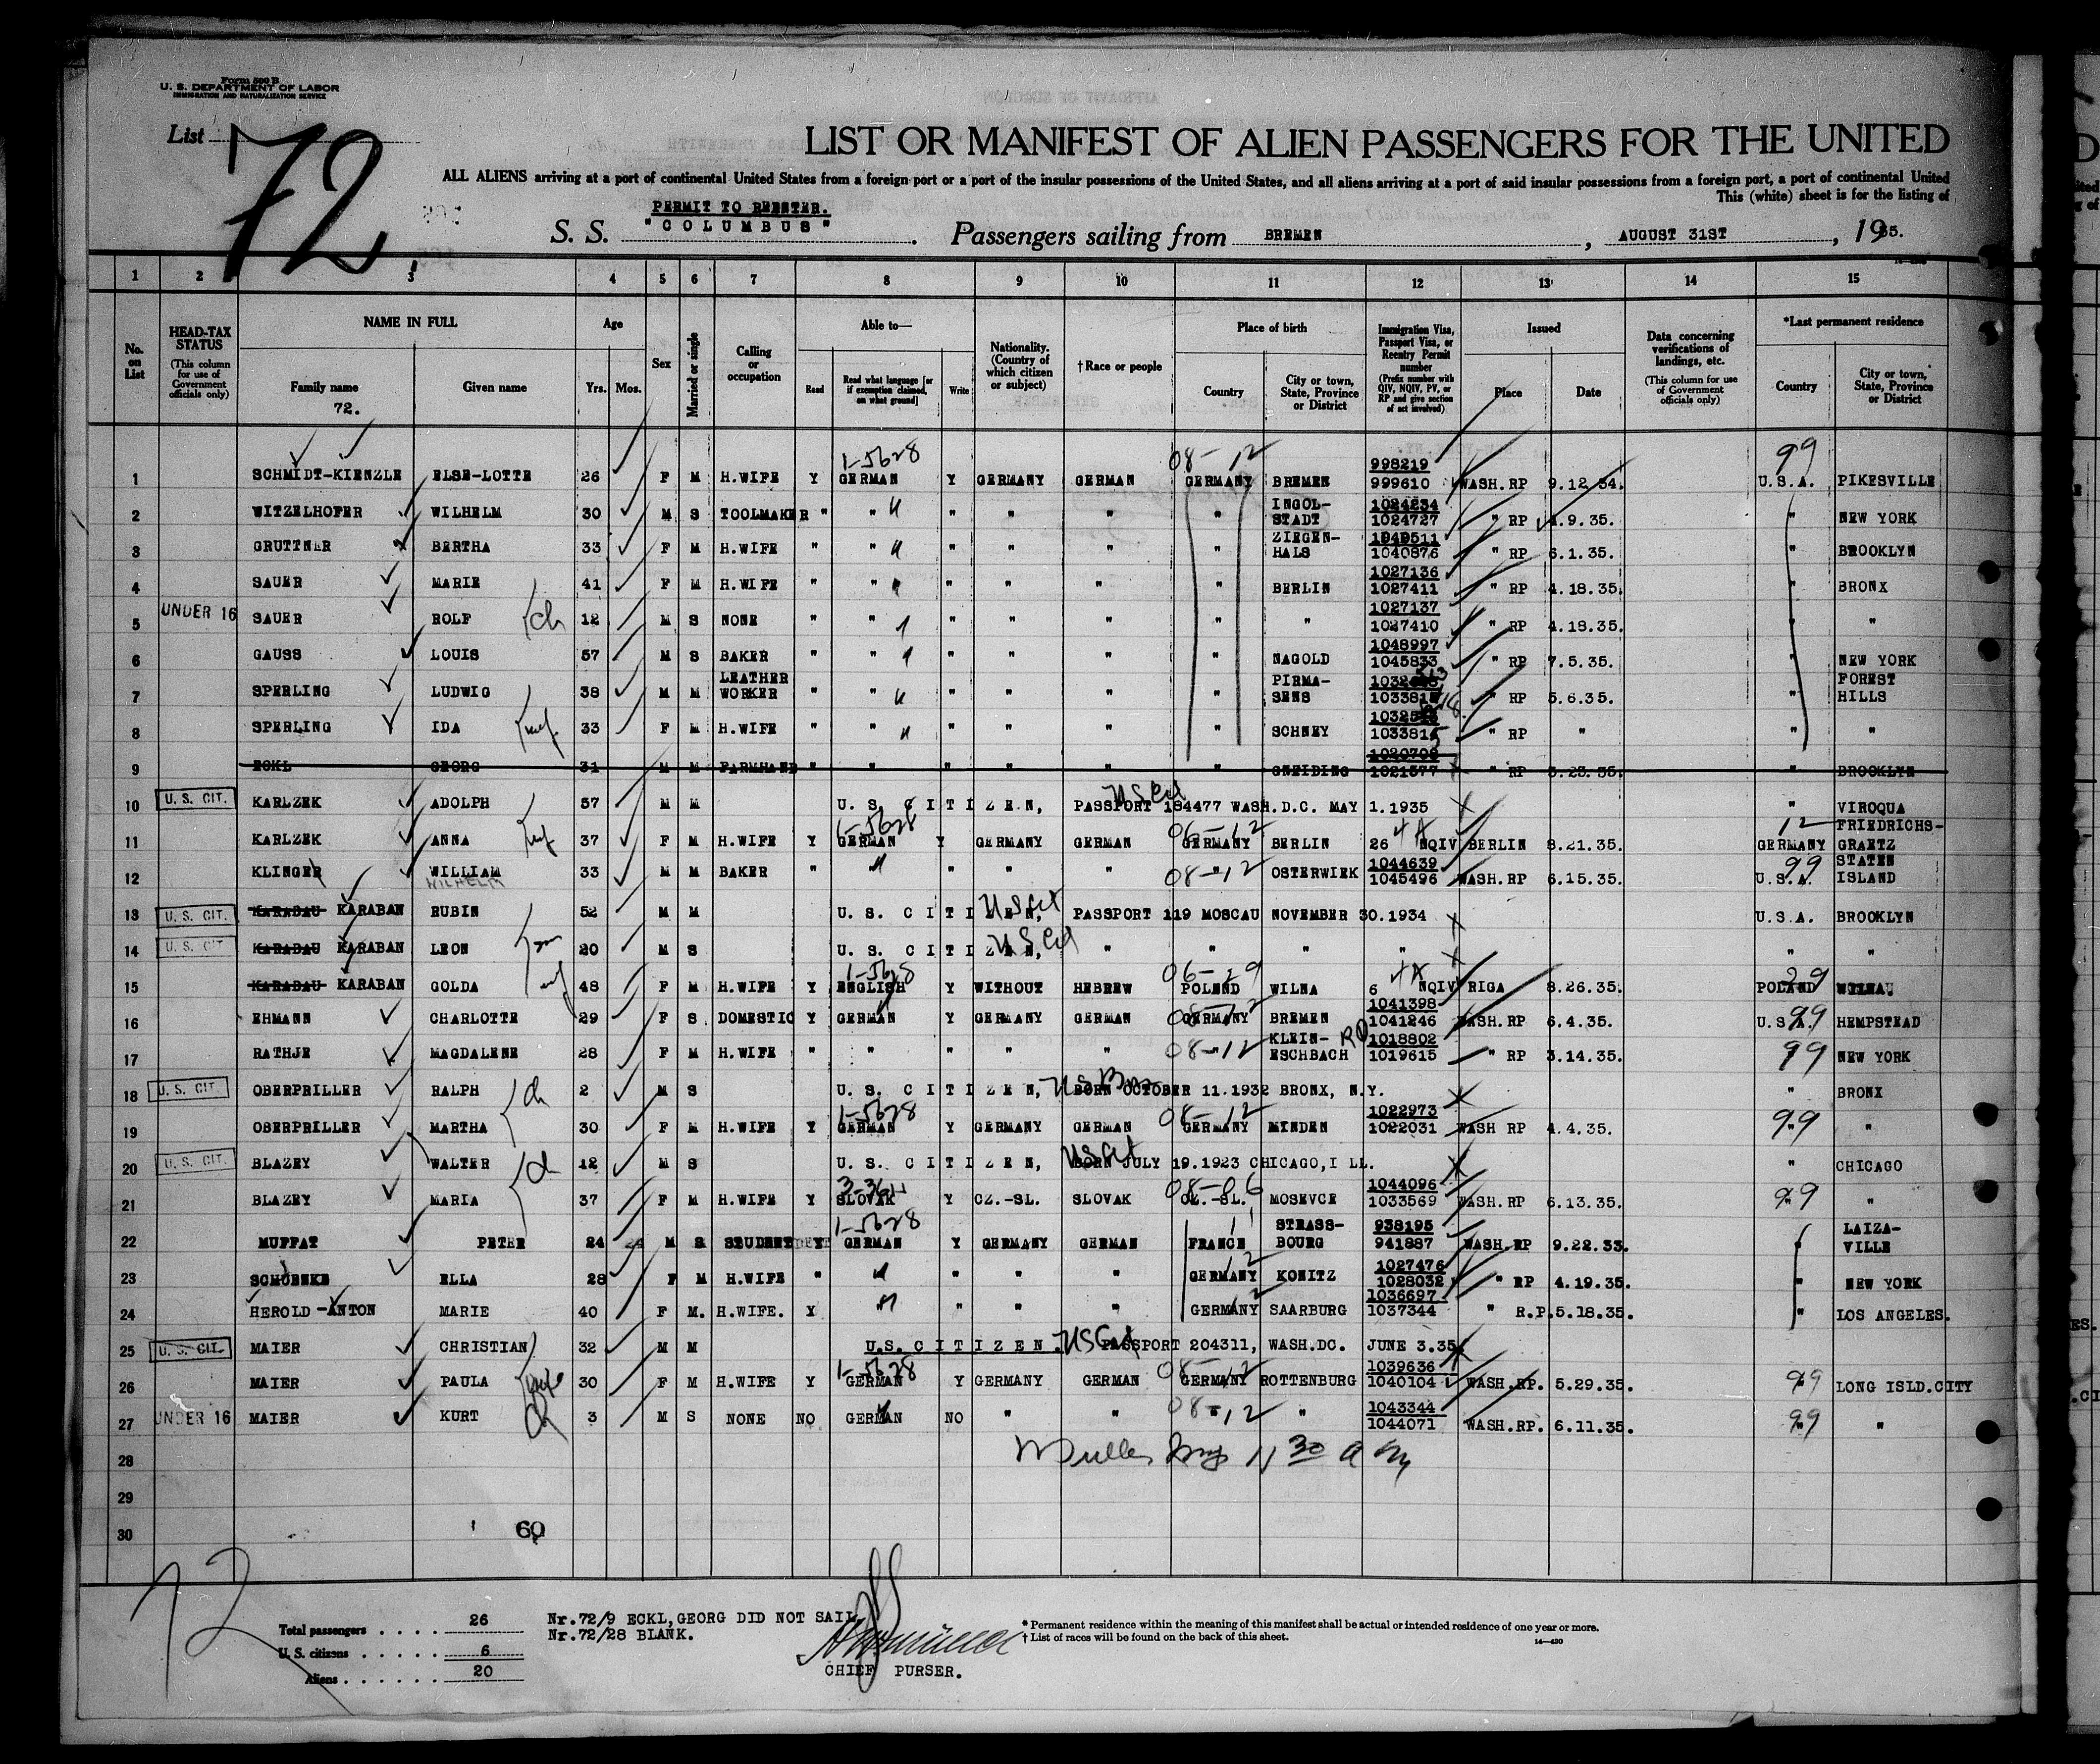 Form 500 B
U. S. DEPARTMENT OF LABOR
IMMIGRATION AND NATURALIZATION SERVICE
List 72
LIST OR MANIFEST OF ALIEN PASSENGERS FOR THE UNITED
ALL ALIENS arriving at a port of continental United States from a foreign port or a port of the insular possessions of the United States, and all aliens arriving at a port of said insular possessions from a foreign port, a port of continental United
This (white) sheet is for the listing of
PERMIT TO REENTER.
S. S. "COLUMBUS". Passengers sailing from BREMEN, AUGUST 31ST, 1935.
1 2 3 4 5 6 7 8 9 10 11 12 13 14 15
No. on List
HEAD-TAX STATUS (This column for use of Government officials only)
NAME IN FULL Family name Given name
72.
Age Yrs. Mos.
Sex
Married or single
Calling or occupation
Able to— Read Read what language [or if exemption claimed, on what ground] Write
Nationality. (Country of which citizen or subject)
†Race or people
Place of birth Country City or town, State, Province or District
Immigration Visa, Passport Visa, or Reentry Permit number (Prefix number with QIV, NQIV, PV, or RP and give section of act involved)
Issued Place Date
Data concerning verifications of landings, etc. (This column for use of Government officials only)
*Last permanent residence Country City or town, State, Province or District
1-5628 08-12 998219 99
1 SCHMIDT-KIENZLE ELSE-LOTTE 26 F M H.WIFE Y GERMAN Y GERMANY GERMAN GERMANY BREMEN 999610 WASH.RP 9.12.34. U.S.A. PIKESVILLE
2 WITZELHOFER WILHELM 30 M S TOOLMAKER " " " " " " INGOL-STADT 1024234 1024727 " RP 4.9.35. " NEW YORK
3 GRUTTNER BERTHA 33 F M H.WIFE " " " " " " ZIEGEN-HALS 1040876 " RP 6.1.35. " BROOKLYN
4 SAUER MARIE 41 F M H.WIFE " " " " " " BERLIN 1027136 1027411 " RP 4.18.35. " BRONX
UNDER 16
5 SAUER ROLF ch 12 M S NONE " " " " " " " 1027137 1027410 " RP 4.18.35. " "
6 GAUSS LOUIS 57 M S BAKER " " " " " " NAGOLD 1048997 1045833 " RP 7.5.35. " NEW YORK
7 SPERLING LUDWIG 38 M M LEATHER WORKER " " " " " " PIRMA-SENS " RP 5.6.35. FOREST HILLS
8 SPERLING IDA wf 33 F M H.WIFE " " " " " " SCHNEY " RP " " "
9 ECKL GEORG 31 M M FARMHAND " " " " " " GNEIDING 1020708 1021577 " RP 3.23.35. " BROOKLYN
10 U. S. CIT. KARLZEK ADOLPH 57 M M U. S. CITIZEN, PASSPORT 184477 WASH.D.C. MAY 1.1935 " VIROQUA
1-5628 06-12 4A 12
11 KARLZEK ANNA wf 37 F M H.WIFE Y GERMAN Y GERMANY GERMAN GERMANY BERLIN 26 NQIV BERLIN 8.21.35. GERMANY FRIEDRICHS-GRAETZ
12 KLINGER WILLIAM WILHELM 33 M M BAKER " " " " " 08-12 OSTERWIEK 1044639 1045496 WASH.RP 6.15.35. 99 U.S.A. STATEN ISLAND
13 U. S. CIT. KARABAU KARABAN RUBIN 52 M M U. S. CITIZEN, US Cit PASSPORT 119 MOSCAU NOVEMBER 30.1934 U.S.A. BROOKLYN
14 U. S. CIT. KARABAU KARABAN LEON 20 M S U. S. CITIZEN, US Cit " " " " " "
1-5628 06-29 4A 29
15 KARABAU KARABAN GOLDA wf 48 F M H.WIFE Y ENGLISH Y WITHOUT HEBREW POLEND WILNA 6 NQIV RIGA 8.26.35. POLAND
16 EHMANN CHARLOTTE 29 F S DOMESTIC Y GERMAN Y GERMANY GERMAN GERMANY 08-12 BREMEN 1041398 1041246 WASH.RP 6.4.35. U.S.A. 99 HEMPSTEAD
17 RATHJE MAGDALENE 28 F M H.WIFE " " " " " 08-12 KLEIN-ESCHBACH 1018802 1019615 " RP 3.14.35. 99 NEW YORK
18 U. S. CIT. OBERPRILLER RALPH ch 2 M S U. S. CITIZEN, BORN OCTOBER 11.1932 BRONX, N.Y. " BRONX
1-5628 08-12
19 OBERPRILLER MARTHA 30 F M H.WIFE Y GERMAN Y GERMANY GERMAN GERMANY MINDEN 1022973 1022031 WASH RP 4.4.35. 99 "
20 U. S. CIT. BLAZEY WALTER ch 12 M S U. S. CITIZEN, BORN JULY 19.1923 CHICAGO,ILL. " CHICAGO
08-06
21 BLAZEY MARIA 37 F M H.WIFE Y SLOVAK Y CZ.-SL. SLOVAK CZ.-SL. MOSEVCE 1044096 1033569 WASH.RP 6.13.35. 99 "
1-5628
22 MUFFAT PETER 24 24 M S STUDENT Y GERMAN Y GERMANY GERMAN FRANCE STRASS-BOURG 938195 941887 WASH.RP 9.22.33. " LAIZA-VILLE
23 SCHUENKE ELLA 28 F M H.WIFE " " " " GERMANY 12 KONITZ 1027476 1028032 " RP 4.19.35. " NEW YORK
24 HEROLD-ANTON MARIE 40 F M. H.WIFE. Y " " " GERMANY SAARBURG 1036697 1037344 " R.P.5.18.35. " LOS ANGELES.
25 U. S. CIT. MAIER CHRISTIAN 32 M M U.S.CITIZEN. US Cit PASSPORT 204311, WASH.DC. JUNE 3.35.
1-5628 08-12
26 MAIER PAULA wife 30 F M H.WIFE Y GERMAN Y GERMANY GERMAN GERMANY ROTTENBURG 1039636 1040104 WASH.RP. 5.29.35. 99 LONG ISLD.CITY
27 UNDER 16 MAIER KURT ch 3 M S NONE NO GERMAN NO " " 08-12 " 1043344 1044071 WASH.RP. 6.11.35. 99 "
28
29
30
60
72
Total passengers . . . . 26
U. S. citizens . . . . . 6
Aliens . . . . . . 20
Nr.72/9 ECKL,GEORG DID NOT SAIL
Nr.72/28 BLANK.
CHIEF PURSER.
* Permanent residence within the meaning of this manifest shall be actual or intended residence of one year or more.
† List of races will be found on the back of this sheet.
14—430